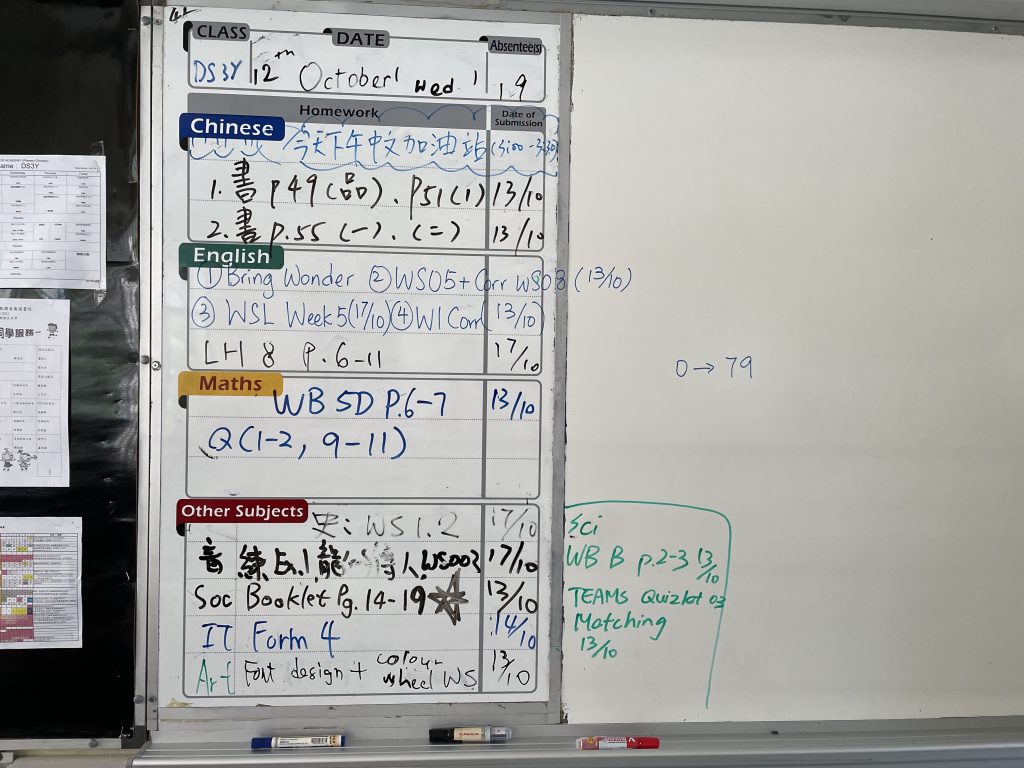 CLASS DATE Absentee(s)
DS3Y 12th October Wed 19
Homework Date of Submission
Chinese
今天下午中文加油站
1. 書 p49 (品). p51(1) 13/10
2. 書 p.55 (一). (二) 13/10
English
① Bring Wonder ② WS05+Corr WS03 (13/10)
③ WSL Week 5(17/10) ④ W1 Corr (13/10)
LH 8 P.6-11 17/10
Maths
WB 5D P.6-7 13/10
Q(1-2, 9-11)
Other Subjects
史: WS 1.2 17/10
音 練 龍 人 17/10
Soc Booklet Pg. 14-19 13/10
IT Form 4 14/10
Art Font design + colour wheel WS 13/10
0 → 79
Sci
WB B p.2-3 13/10
TEAMS Quizlet 03
Matching
13/10
DS3Y
同學服務